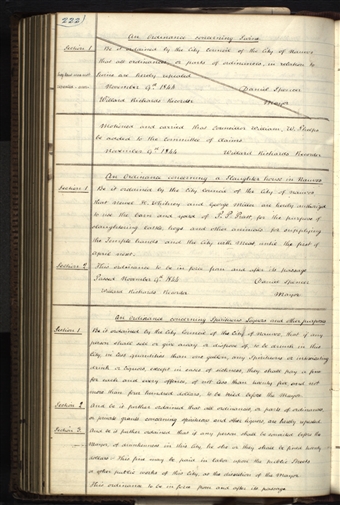 222)
An Ordinance concerning Swine
Section 1. Be it ordained by the City Council of the City of Nauvoo
that all ordinances or parts of ordinances, in relation to
Swine are hereby repealed
November 9th 1844 Daniel Spencer
Willard Richards Recorder Mayor
Motioned and carried that Councillor William W. Phelps
be added to the Committee of Claims
November 9th 1844 Willard Richards Recorder
An Ordinance concerning a Slaughter house in Nauvoo
Section 1. Be it ordained by the City Council of the City of Nauvoo
that Newel K. Whitney and George Miller are hereby authorized
to use the barn and yard of P. P. Pratt, for the purpose of
slaughtering cattle, hogs and other animals for supplying
the Temple hands and the City with meat until the first of
April next.
Section 2. This ordinance to be in force from and after its passage
Passed November 9th 1844 Daniel Spencer
Willard Richards Recorder Mayor
An Ordinance concerning Spirituous Liquors and other purposes
Section 1. Be it ordained by the City Council of the City of Nauvoo, that if any
person shall sell or give away or dispose of, to be drunk in this
City in less quantities than one gallon, any Spirituous or intoxicating
drink or liquor, except in cases of sickness, they shall pay a fine
for each and every offence, of not less than twenty five, and not
more than five hundred dollars, to be tried before the Mayor.
Section 2. And be it further ordained that all ordinances or parts of ordinances,
or private grants concerning spirituous and other liquors, are hereby repealed.
Section 3. And be it further ordained that if any person shall be convicted before the
Mayor of drunkenness in this City he, she or they shall be fined
dollars. This fine may be paid in labor upon the public Streets
or other public works of this City, at the discretion of the Mayor.
This ordinance to be in force from and after its passage.